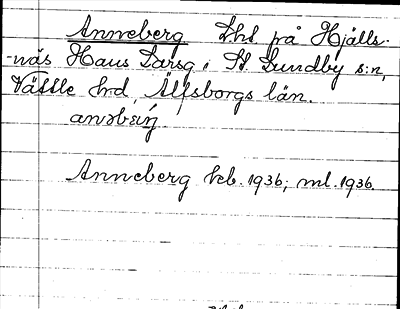 Anneberg Lht på Hjälls-
-näs Hans Larsg, St Lundby s:n,
Vättle hd, Älfsborgs län.
Anneberg kb. 1936; ml. 1936.